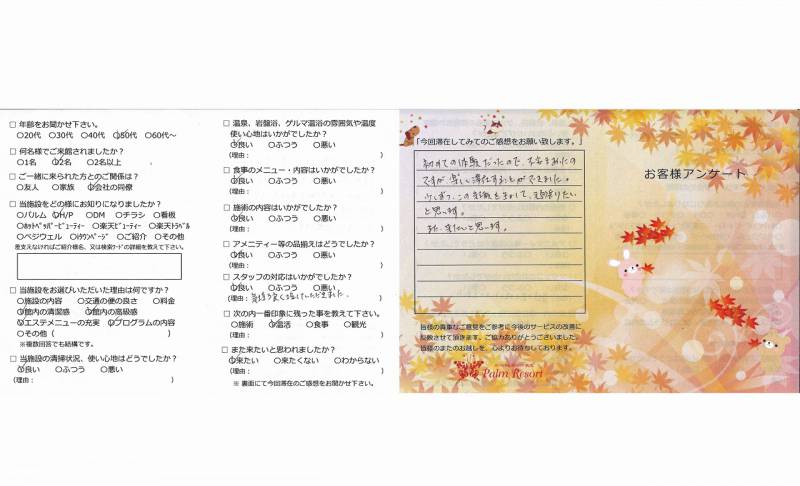 □ 年齢をお聞かせ下さい。
○20代 ○30代 ○40代 ○50代 ○60代～
□ 何名様でご来館されましたか？
○1名 ○2名 ○2名以上
□ ご一緒に来られた方とのご関係は？
○友人 ○家族 ○会社の同僚
□ 当施設をどの様にお知りになりましたか？
○パルム ○H/P ○DM ○チラシ ○看板
○ホットペッパービューティー ○楽天ビューティー ○楽天トラベル
○ベジウェル ○iタウンページ ○ご紹介 ○その他
差支えなければご紹介様名、又は検索ワードの詳細を教えて下さい。
□ 当施設をお選びいただいた理由は何ですか？
○施設の内容 ○交通の便の良さ ○料金
○館内の清潔感 ○館内の高級感
○エステメニューの充実 ○プログラムの内容
○その他（ ）
※複数回答でも結構です。
□ 当施設の清掃状況、使い心地はどうでしたか？
○良い ○ふつう ○悪い
(理由： )
□ 温泉、岩盤浴、ゲルマ温浴の雰囲気や温度
使い心地はいかがでしたか？
○良い ○ふつう ○悪い
(理由： )
□ 食事のメニュー・内容はいかがでしたか？
○良い ○ふつう ○悪い
(理由： )
□ 施術の内容はいかがでしたか？
○良い ○ふつう ○悪い
(理由： )
□ アメニティー等の品揃えはどうでしたか？
○良い ○ふつう ○悪い
(理由： )
□ スタッフの対応はいかがでしたか？
○良い ○ふつう ○悪い
(理由： )
□ 次の内一番印象に残った事を教えて下さい。
○施術 ○温活 ○食事 ○観光
□ また来たいと思われましたか？
○来たい ○来たくない ○わからない
(理由： )
※ 裏面にて今回滞在のご感想をお聞かせ下さい。
「今回滞在してみてのご感想をお願い致します。」
初めての体験だったので、
ですが、楽しく滞在することができました。
と思います。
また、来たいと思います。
皆様の貴重なご意見をご参考に今後のサービスの改善に
反映させて頂きます。ご協力ありがとうございました。
皆様のまたのお越しを、心よりお待ちしております。
Palm Resort
お客様アンケート